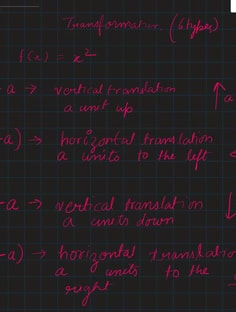 Transformation. (6 types)
f(x) = x²
-a → vertical translation
a unit up
↑ a
-a) → horizontal translation
a units to the left
-a → vertical translation
a units down
↓
-a) → horizontal translation
a units to the
right